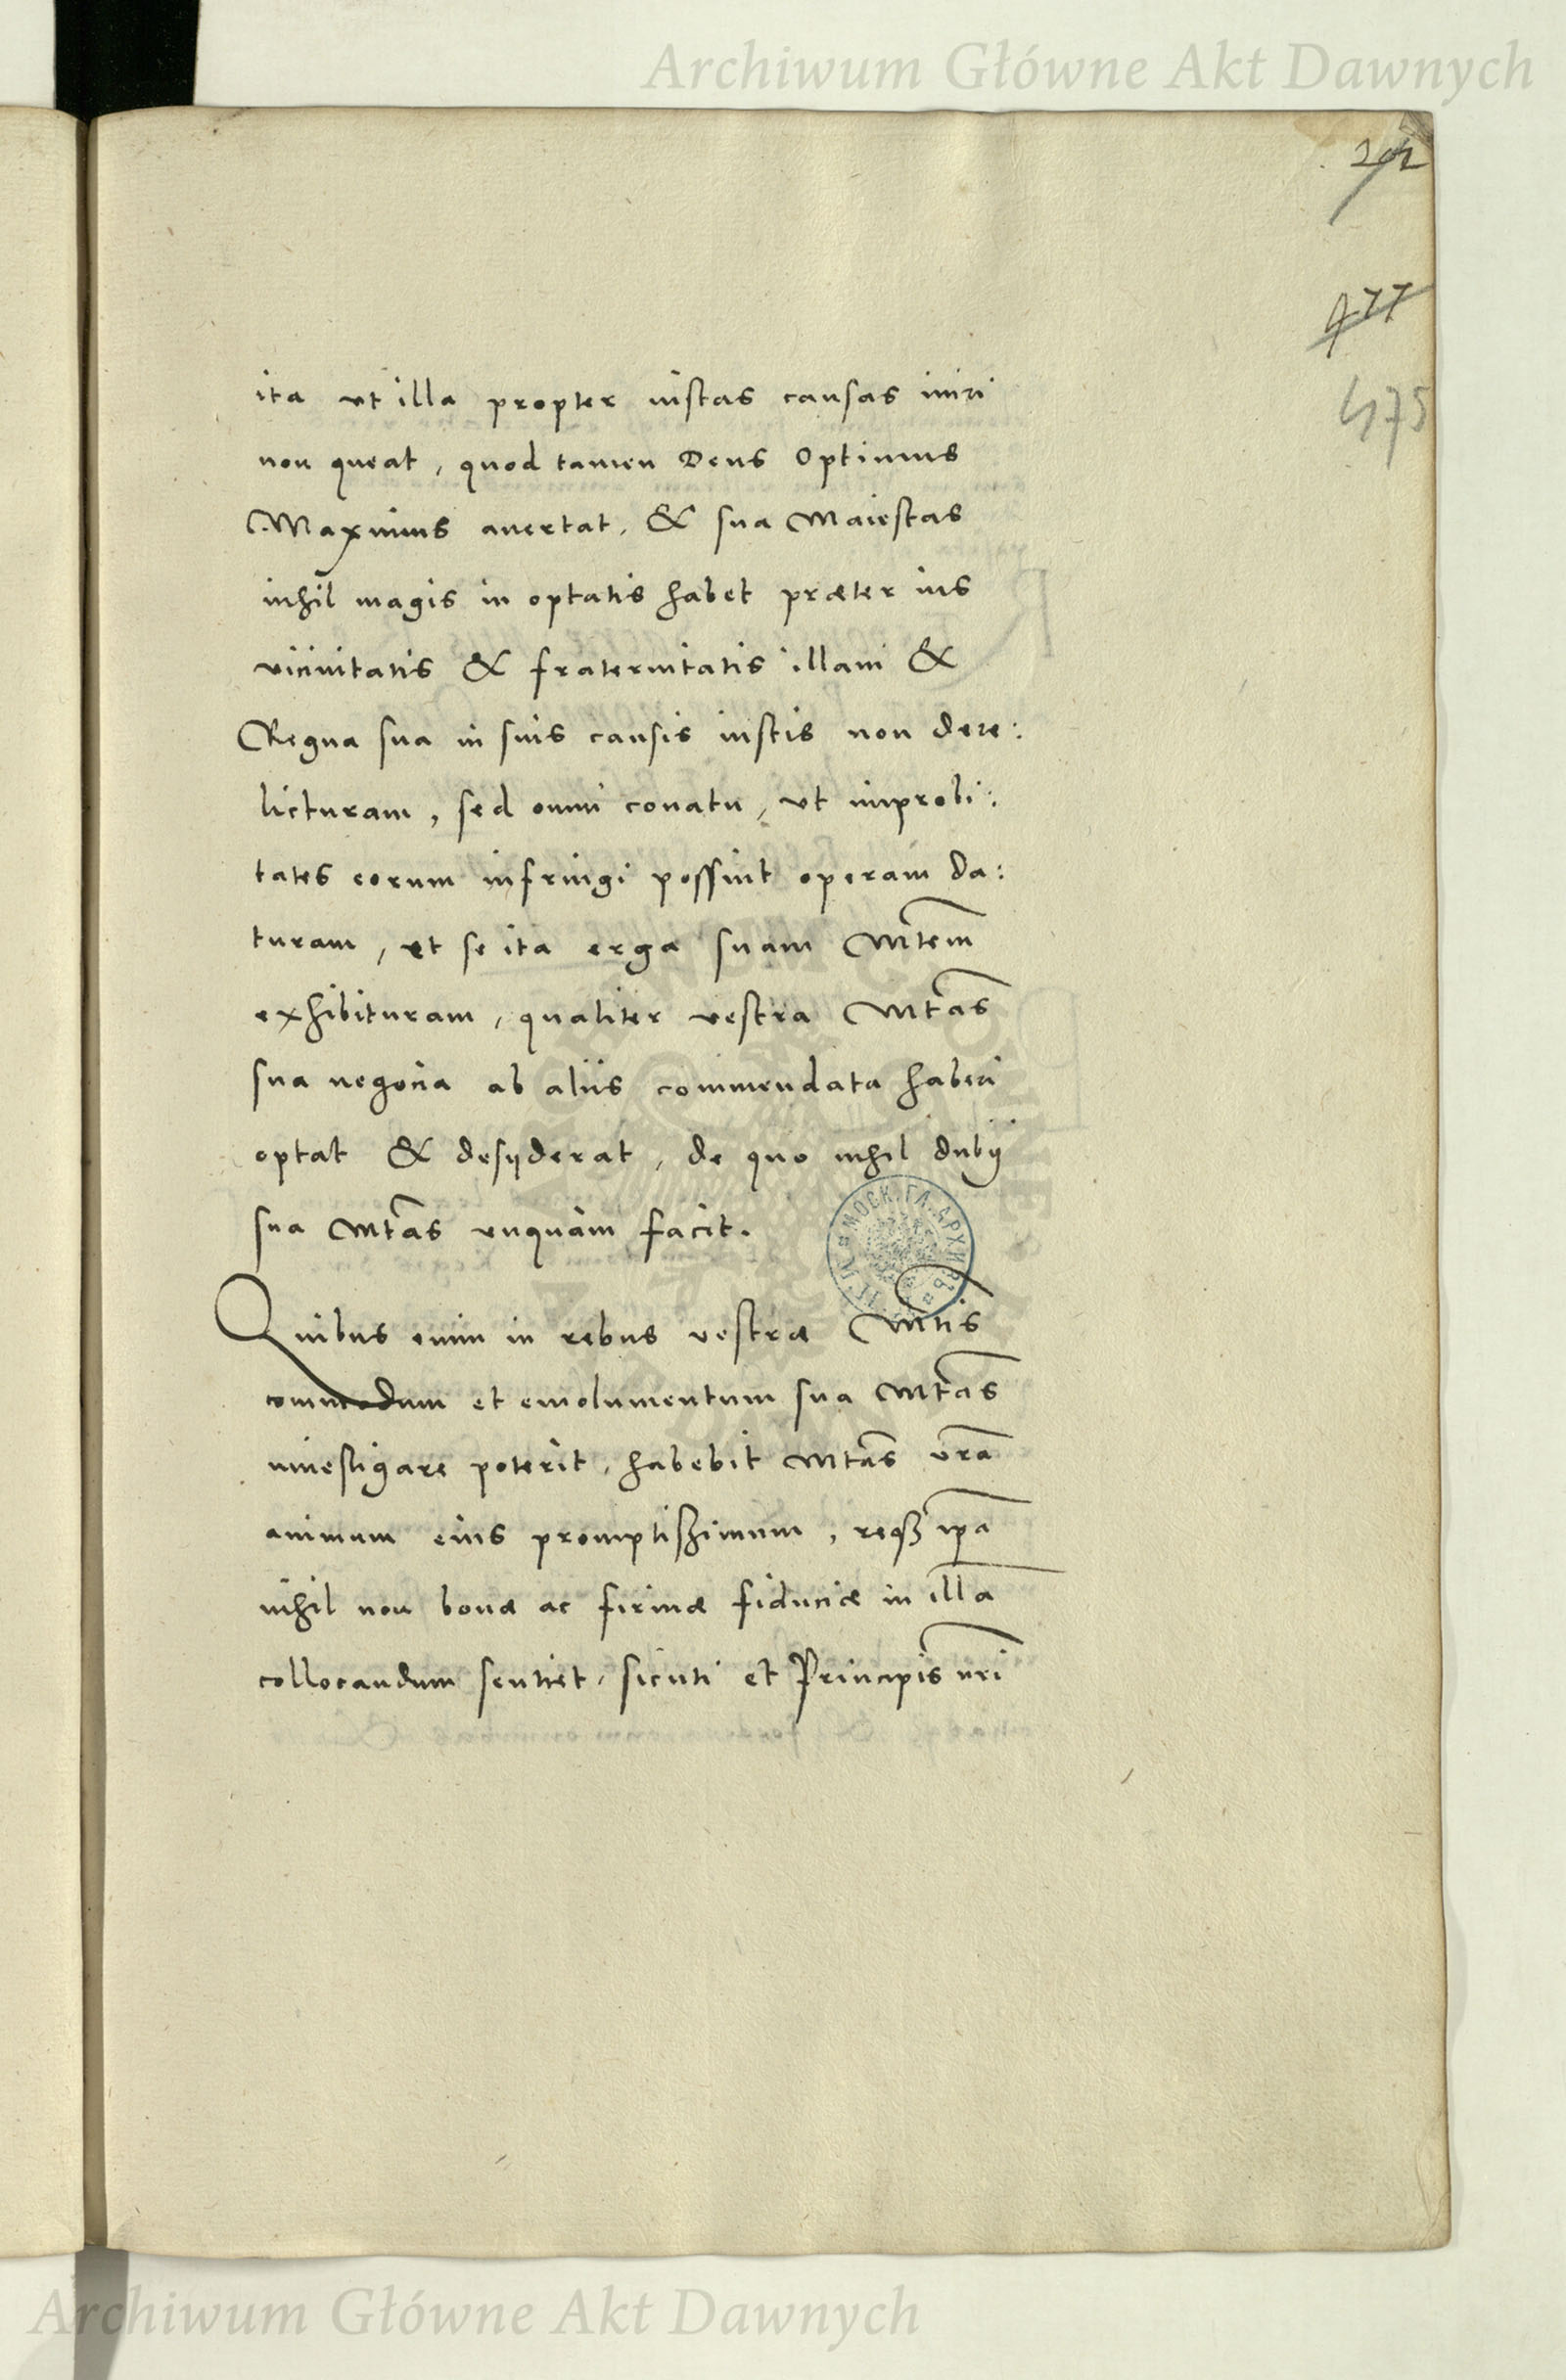 Archiwum Główne Akt Dawnych
477
475
ita ut illa propter iustas causas iniri
non queat, quod tamen Deus Optimus
Maximus auertat, & sua Maiestas
nihil magis in optatis habet præter ius
vicinitatis & fraternitatis illam &
Regna sua in suis causis iustis non dere:
licturam, sed omni conatu, ut improbi:
tates eorum infringi possint operam da:
turam, et se ita erga suam Mtem
exhibituram, qualiter vestra Mtas
sua negocia ab aliis commendata haberi
optat & desyderat, de quo nihil dubij
sua Mtas unquam facit.
Quibus enim in rebus vestræ Mtis
commodum et emolumentum sua Mtas
inuestigare poterit, habebit Mtas vra
animum eius promptissimum, reqȝ ipa
nihil non bonæ ac firmæ fiduciæ in illa
collocandum sentiet, sicuti et Principis nri
МОСК. ГЛ. АРХИВЪ
Archiwum Główne Akt Dawnych